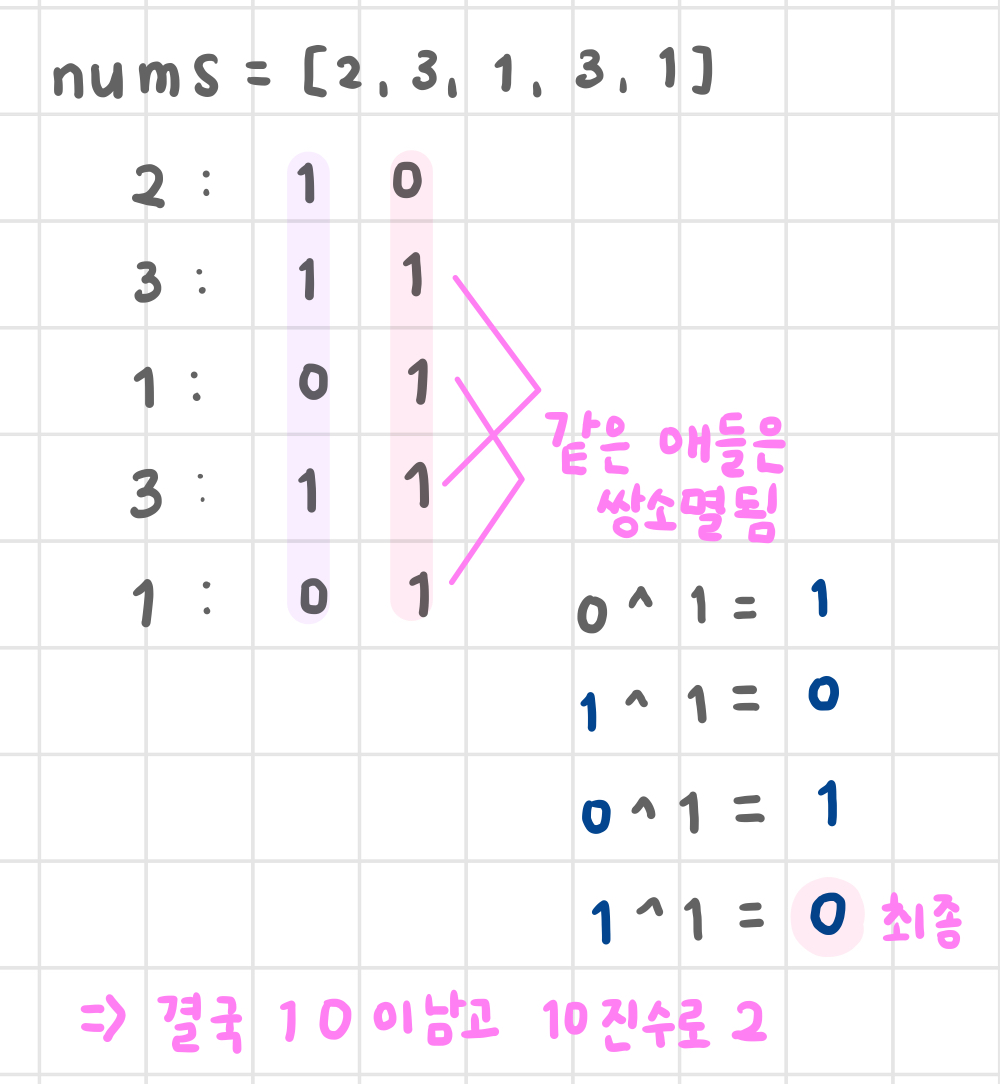 nums = [2, 3, 1, 3, 1]
2 : 1 0
3 : 1 1
1 : 0 1
3 : 1 1
1 : 0 1
같은 애들은
쌍소멸됨
0 ^ 1 = 1
1 ^ 1 = 0
0 ^ 1 = 1
1 ^ 1 = 0 최종
=> 결국 1 0 이남고 10진수로 2